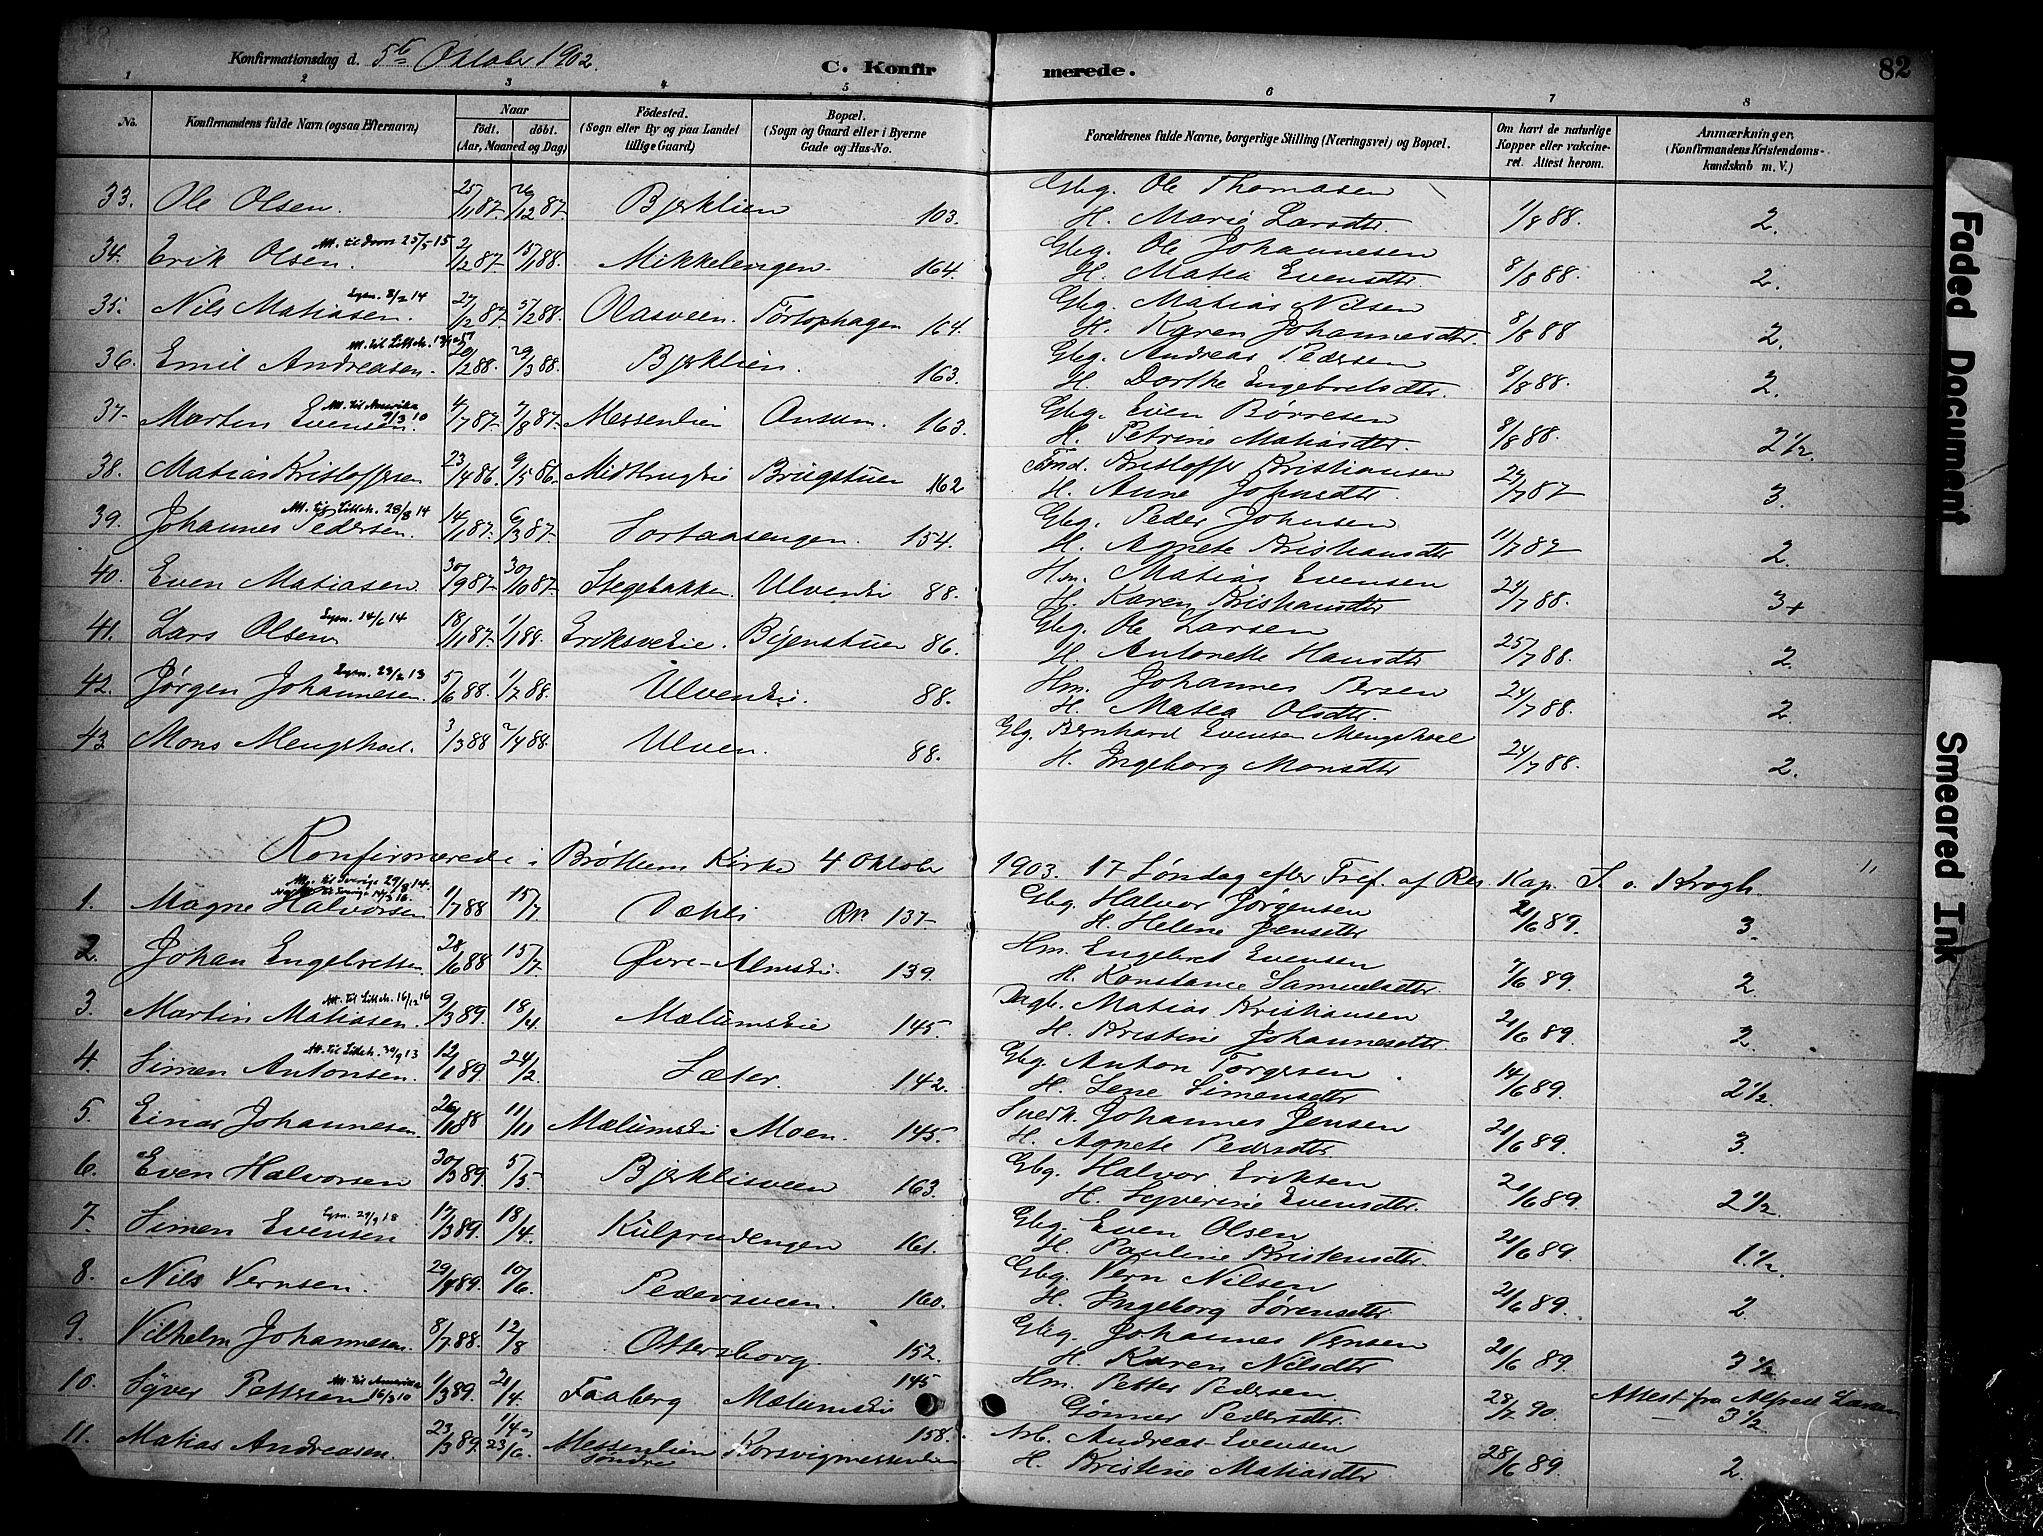 Konfirmationsdag d. 5te Oktober 1902.
C. Konfirmerede.
82
1 2 3 4 5 6 7 8
No. Konfirmandens fulde Navn (ogsaa Efternavn) Naar født. døbt. (Aar, Maaned og Dag) Fødested. (Sogn eller By og paa Landet tillige Gaard) Bopæl. (Sogn og Gaard eller i Byerne Gade og Hus-No. Forældrenes fulde Navne, borgerlige Stilling (Næringsvei) og Bopæl. Om havt de naturlige Kopper eller vakcineret. Attest herom. Anmærkninger. (Konfirmandens Kristendomskundskab m. V.)
33. Ole Olsen. 25/11 87. 26/12 87. Bjerklien 103. Gbg. Ole Thomasen
H. Marie Larsdtr. 1/8 88. 2.
34. Erik Olsen. 2/12 87. 15/1 88. Mikkelengen. 164. Gbg. Ole Johannesen
H. Matea Evensdtr. 8/8 88. 2.
35. Nils Matiasen. Lysn. 8/2 14 27/12 87. 5/2 88. Olasveen Tortophagen 164. Gbg. Matias Nilsen
H. Karen Johannesdtr. 8/8 88 2.
36. Emil Andreasen. 20/2 88. 29/3 88. Bjerklien. 163. Gbg. Andreas Pedersen
H. Dorthe Engebretsdtr. 8/8 88. 2.
37. Martin Evensen. Att. til Amerika 9/3 10 4/7 87. 7/8 87. Messenlien Onsum. 163. Gbg. Even Børresen
H. Petrine Matiasdtr. 8/8 88. 2 1/2.
38. Matias Kristoffersen 23/4 86. 9/5 86. Midtbrugeie Brugstuen 162 Fmd. Kristoffer Kristiansen
H. Anne Johnsdtr. 27/7 87 3.
39. Johannes Pedersen. Att. til Lilleh. 28/8 14 14/1 87. 6/3 87. Sortaasengen. 154. Gbg. Peder Johnsen
H. Agnete Kristiansdtr 11/7 87 2.
40. Even Matiasen 30/9 87. 30/10 87. Stegebakken Ulveneie 88. Hm. Matias Evensen
H. Karen Kristiansdtr 24/7 88. 3+
41. Lars Olsen Lysn. 14/6 14 18/11 87. 1/1 88. Eriksveeie. Bjenstuen 86. Gbg. Ole Larsen
H. Antonette Hansdtr 25/7 88. 2
42. Jørgen Johannesen. Lysn. 23/2 13 5/6 88. 1/7 88. Ulveneie. 88. Hm. Johannes Persen
H. Matea Olsdtr. 24/7 88. 2.
43. Mons Mengshoel. 3/3 88 2/4 88. Ulven. 88. Gbg. Bernhard Evensen Mengshoel
H. Ingeborg Monsdtr 24/7 88. 2.
Konfirmerede i Brøttum Kirke 4 Oktober 1903. 17 Søndag efter Tref. af Res. Kap. S. v. Krogh.
1. Magne Halvorsen Att. til Sverige 29/8 14. 1/7 88 15/7 Væhli Rn. 137 Gbg. Halvor Jørgensen
H. Helene Jensdtr 21/6 89. 3.
2. Johan Engebretsen 28/6 88 15/7 Øvre-Almseie. 139. Hm. Engebret Evensen
H. Konstance Samuelsdtr. 7/6 89. 2.
3. Martin Matiasen. Att. til Lilleh. 16/12 16 9/3 89. 18/4 Mælumseie 145. Dagb. Matias Kristiansen
H. Kristine Johannesdtr. 21/6 89. 2.
4. Simen Antonsen. Att. til Lilleh. 30/9 13 12/1 89. 24/2. Sæter. 142. Gbg. Anton Torgersen
H. Lene Simensdtr 14/6 89. 2 1/2
5. Einar Johannesen. 26/10 88 11/11 Mælumseie Moen. 145. Snedk. Johannes Jensen
H. Agnete Pedersdtr 21/6 89. 3.
6. Even Halvorsen 30/3 89. 5/5. Bjerklisveen 163. Gbg. Halvor Eriksen
H. Syverine Evensdtr. 21/6 89. 2 1/2.
7. Simen Evensen Lysn. 29/9 18 17/3 89. 18/4. Kulprudengen 161. Gbg. Even Olsen
H. Pauline Kristensdtr. 21/6 89. 1 1/2.
8. Nils Vernsen. 29/4 89. 10/6. Pedersveen. 160. Gbg. Vern Nilsen
H. Ingeborg Sørensdtr 21/6 89. 2.
9. Vilhelm Johannesen. 8/7 88. 12/8 Ottersborg. 152. Gbg. Johannes Vernsen
H. Karen Nilsdtr 21/6 89. 3 1/2
10. Syver Pettersen Att. til Amerika 16/3 10 1/3 89. 21/4. Faaberg Mælumseie 145 Hm. Petter Pedersen
Gønner Pedersdtr. 28/7 90. Attest fra Alfred Larsen 3 1/2
11. Matias Andreasen. 23/3 89. 1/4 23/6. Messenlien søndre Korsvigmessenlien 158. Arb. Andreas Evensen
H. Kristine Matiasdtr. 28/6 89. 2.
Faded Document
Smeared Ink